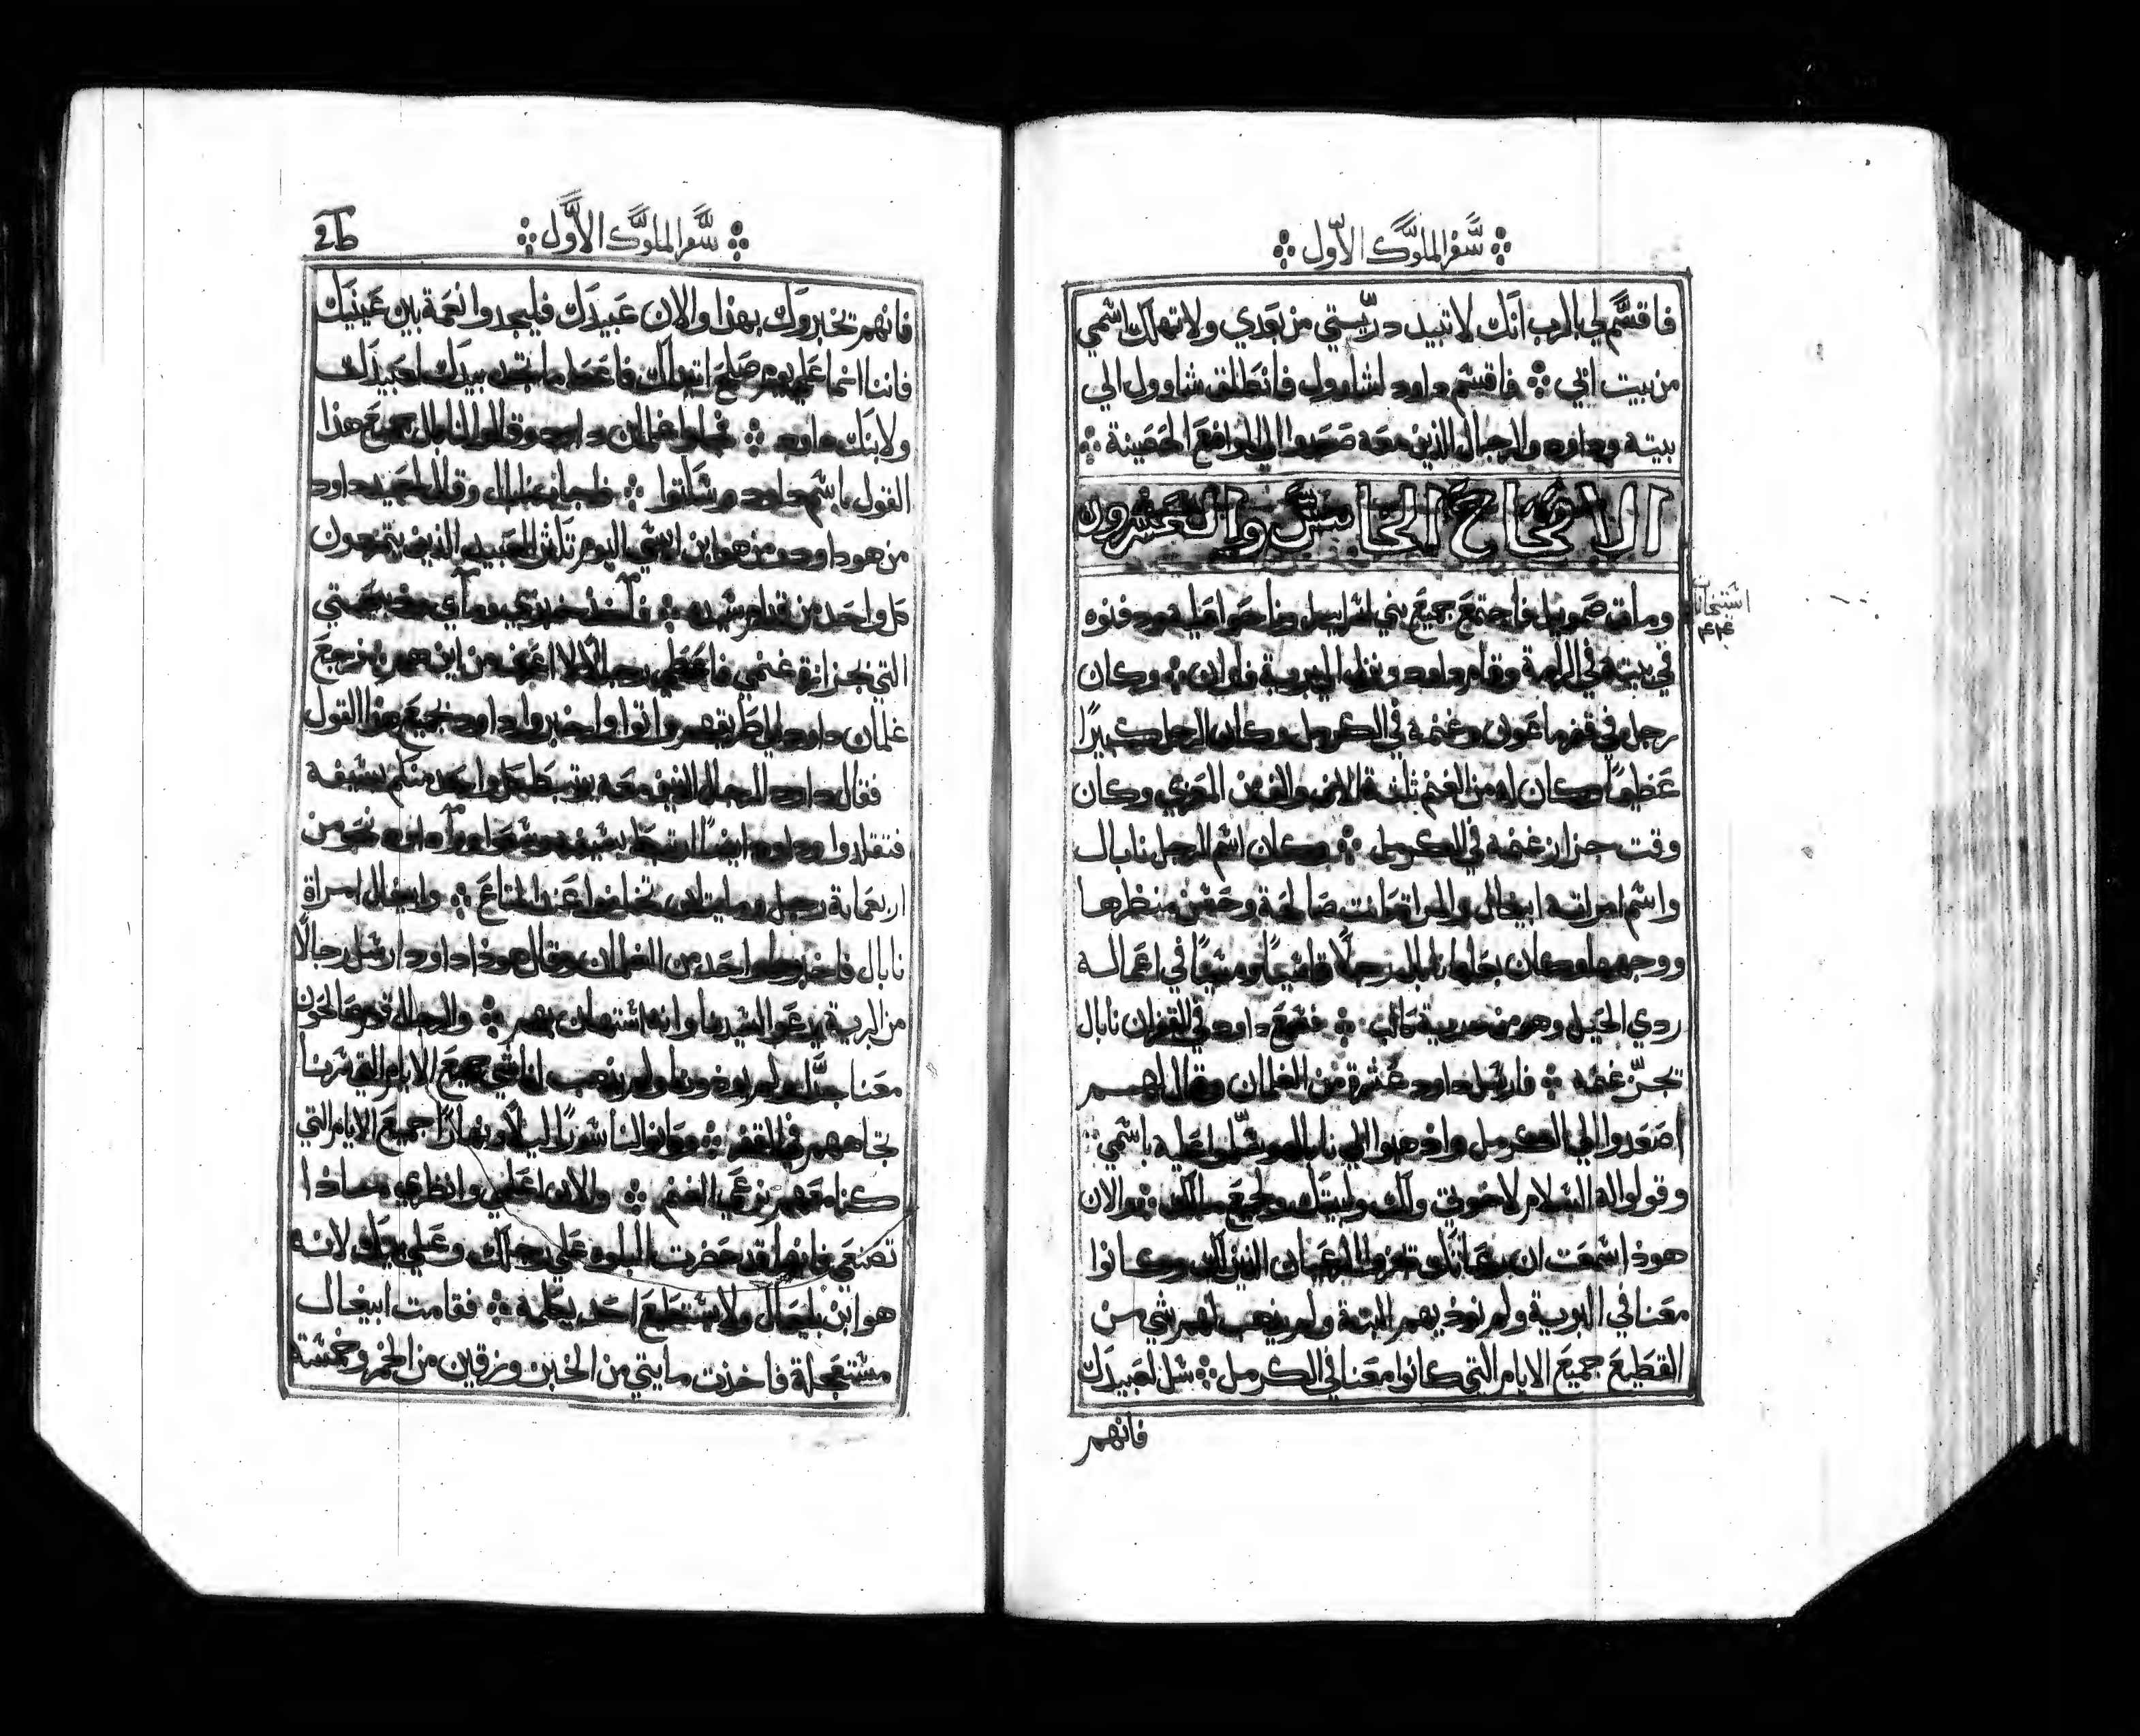 سفر الملوك الاول
فاقسم لي بالرب انك لا تبيد دريستي من بعدي ولا تهلك اسمي
من بيت ابي فاقسم داود لشاوول فانطلق شاوول الي
بيته وداود والرجال الذين معه صعدوا الي المواضع الحصينة
الاصحاح الخامس والعشرون
ومات صموييل فاجتمع جميع بني اسراييل وناحوا عليه ودفنوه
في بيته في الرامة وقام داود ونزل الي برية فاران وكان
رجل في قفر ماعون وغنمه في الكرمل وكان الرجل كبيرًا
عظيمًا وكان له من الغنم ثلثة الاف والف من المعزي وكان
وقت جزاز غنمه في الكرمل وكان اسم الرجل نابال
واسم امراته ابيغال والمراة كانت صالحة وحسن منظرها
ووجهها وكان بعلها نابال رجلًا قاسيًا في اعماله
ردي الحيل وهو من كالب فسمع داود في القفر ان نابال
تجز غنمه فارسل داود عشرة من الغلمان وقال لهم
اصعدوا الي الكرمل واذهبوا الي نابال وسلموا عليه باسمي
وقولوا له السلام لاخوتي ولك ولبيتك ولجميع مالك والان
هوذا سمعت ان الرعيان الذين لك وكانوا
معنا في البرية ولم نوذيهم البتة ولم يذهب لهم شي من
القطيع جميع الايام التي كانوا معنا في الكرمل سل لعبيدك
فانهم
سفر الملوك الاول
فانهم تخبروك بهذا والان عبيدك فليجدوا نعمة بين عينيك
فاننا انما علي يوم صالح اتيناك فاعط ما تجد بيدك لعبيدك
ولابنك داود فجاوا غلمان داود وقالوا لنابال جميع هذا
القول باسم داود وسكتوا فاجاب نابال وقال لعبيد داود
من هو داود ومن هو ابن ايسي اليوم العبيد الذين
كل واحد من قدام سيده فآخذ خبزي ومآي
التي لجزازة غنمي فاعطي رجالًا لا اعرف من اين هم فرجع
غلمان داود الي طريقهم واتوا واخبروا داود بجميع هذا القول
فقال داود للرجال الذين معه كل واحد منكم بسيفه
فتقلدوا وداود ايضًا بسيفه وراه نحو من
اربعماية رجل ومايتان تخلفوا عند المتاع وابيغال امراة
نابال فاخبرها واحد من الغلمان وقال هوذا داود ارسل رجالًا
من البرية ليدعوا لسيدنا وانه استهان بهم والرجال قوم صالحون
معنا جدًا ولم يوذونا ولم يذهب لنا شي جميع الايام التي سرنا
تجاههم في القفر وكانوا لنا سورًا ليلًا ونهارًا جميع الايام التي
كنا معهم نرعي الغنم والان اعلمي وانظري ماذا
تصنعي فانها قد حضرت البلوه علي رجلك وعلي بيتك لانه
هو ابن بليعال ولا يستطيع احد يكلمه فقامت ابيغال
مستعجلة فاخذت مايتي من الخبز وزقين من الخمر وخمسة